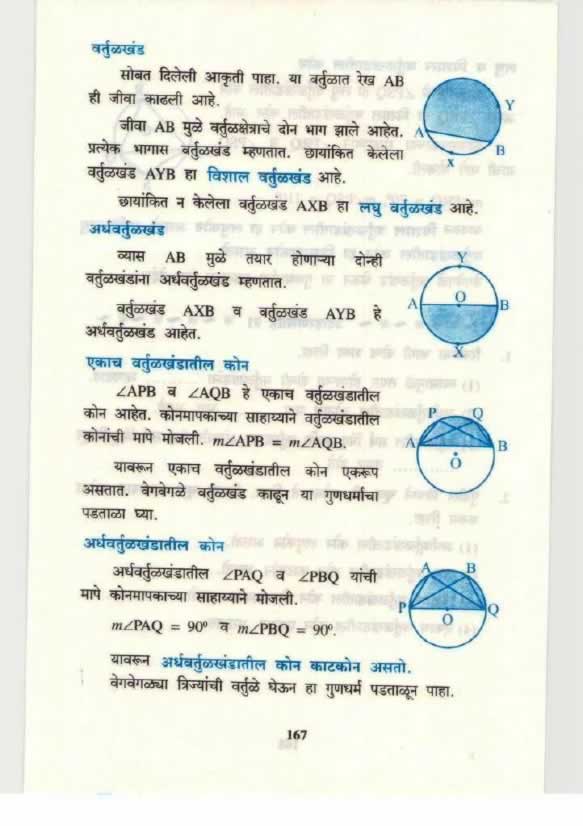 वर्तुळखंड
सोबत दिलेली आकृती पाहा. या वर्तुळात रेख AB
ही जीवा काढली आहे.
जीवा AB मुळे वर्तुळक्षेत्राचे दोन भाग झाले आहेत.
प्रत्येक भागास वर्तुळखंड म्हणतात. छायांकित केलेला
वर्तुळखंड AYB हा विशाल वर्तुळखंड आहे.
Y
A
B
X
छायांकित न केलेला वर्तुळखंड AXB हा लघु वर्तुळखंड आहे.
अर्धवर्तुळखंड
व्यास AB मुळे तयार होणाऱ्या दोन्ही
वर्तुळखंडांना अर्धवर्तुळखंड म्हणतात.
वर्तुळखंड AXB व वर्तुळखंड AYB हे
अर्धवर्तुळखंड आहेत.
Y
A O B
X
एकाच वर्तुळखंडातील कोन
∠APB व ∠AQB हे एकाच वर्तुळखंडातील
कोन आहेत. कोनमापकाच्या साहाय्याने वर्तुळखंडातील
कोनांची मापे मोजली. m∠APB = m∠AQB.
यावरून एकाच वर्तुळखंडातील कोन एकरूप
असतात. वेगवेगळे वर्तुळखंड काढून या गुणधर्माचा
पडताळा घ्या.
P Q
A B
O
अर्धवर्तुळखंडातील कोन
अर्धवर्तुळखंडातील ∠PAQ व ∠PBQ यांची
मापे कोनमापकाच्या साहाय्याने मोजली.
m∠PAQ = 90° व m∠PBQ = 90°.
A B
P O Q
यावरून अर्धवर्तुळखंडातील कोन काटकोन असतो.
वेगवेगळ्या त्रिज्यांची वर्तुळे घेऊन हा गुणधर्म पडताळून पाहा.
167